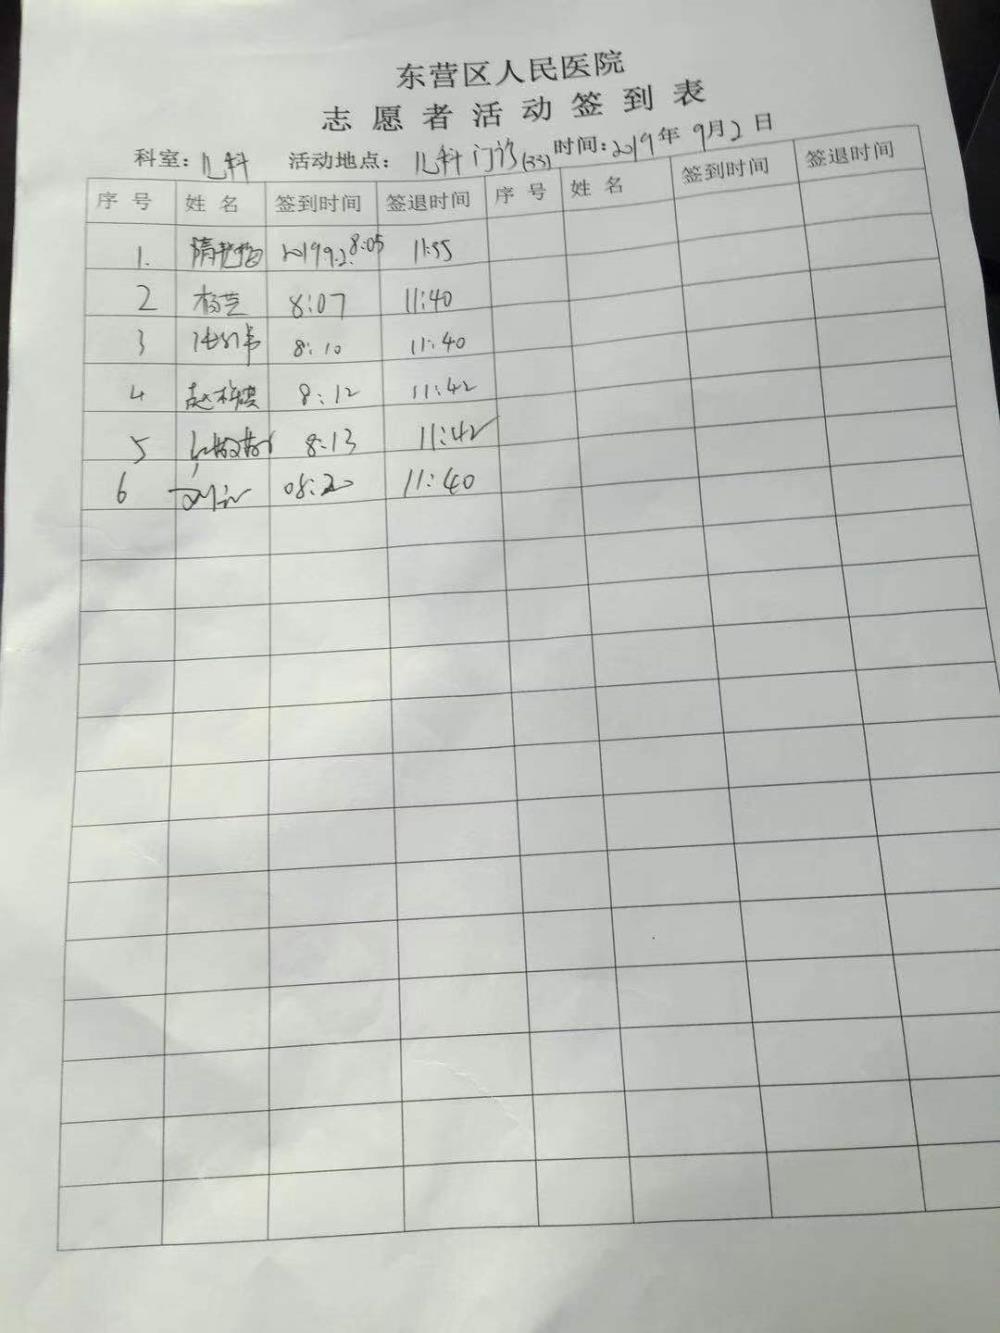 东营区人民医院
志愿者活动签到表
科室：儿科 活动地点：儿科门诊(33) 时间：2019年9月2日
序号 姓名 签到时间 签退时间 序号 姓名 签到时间 签退时间
1. 隋艳 2019.9.2 8:05 11:55
2 杨芸 8:07 11:40
3 8:10 11:40
4 赵 8:12 11:42
5 8:13 11:42
6 刘 08:20 11:40